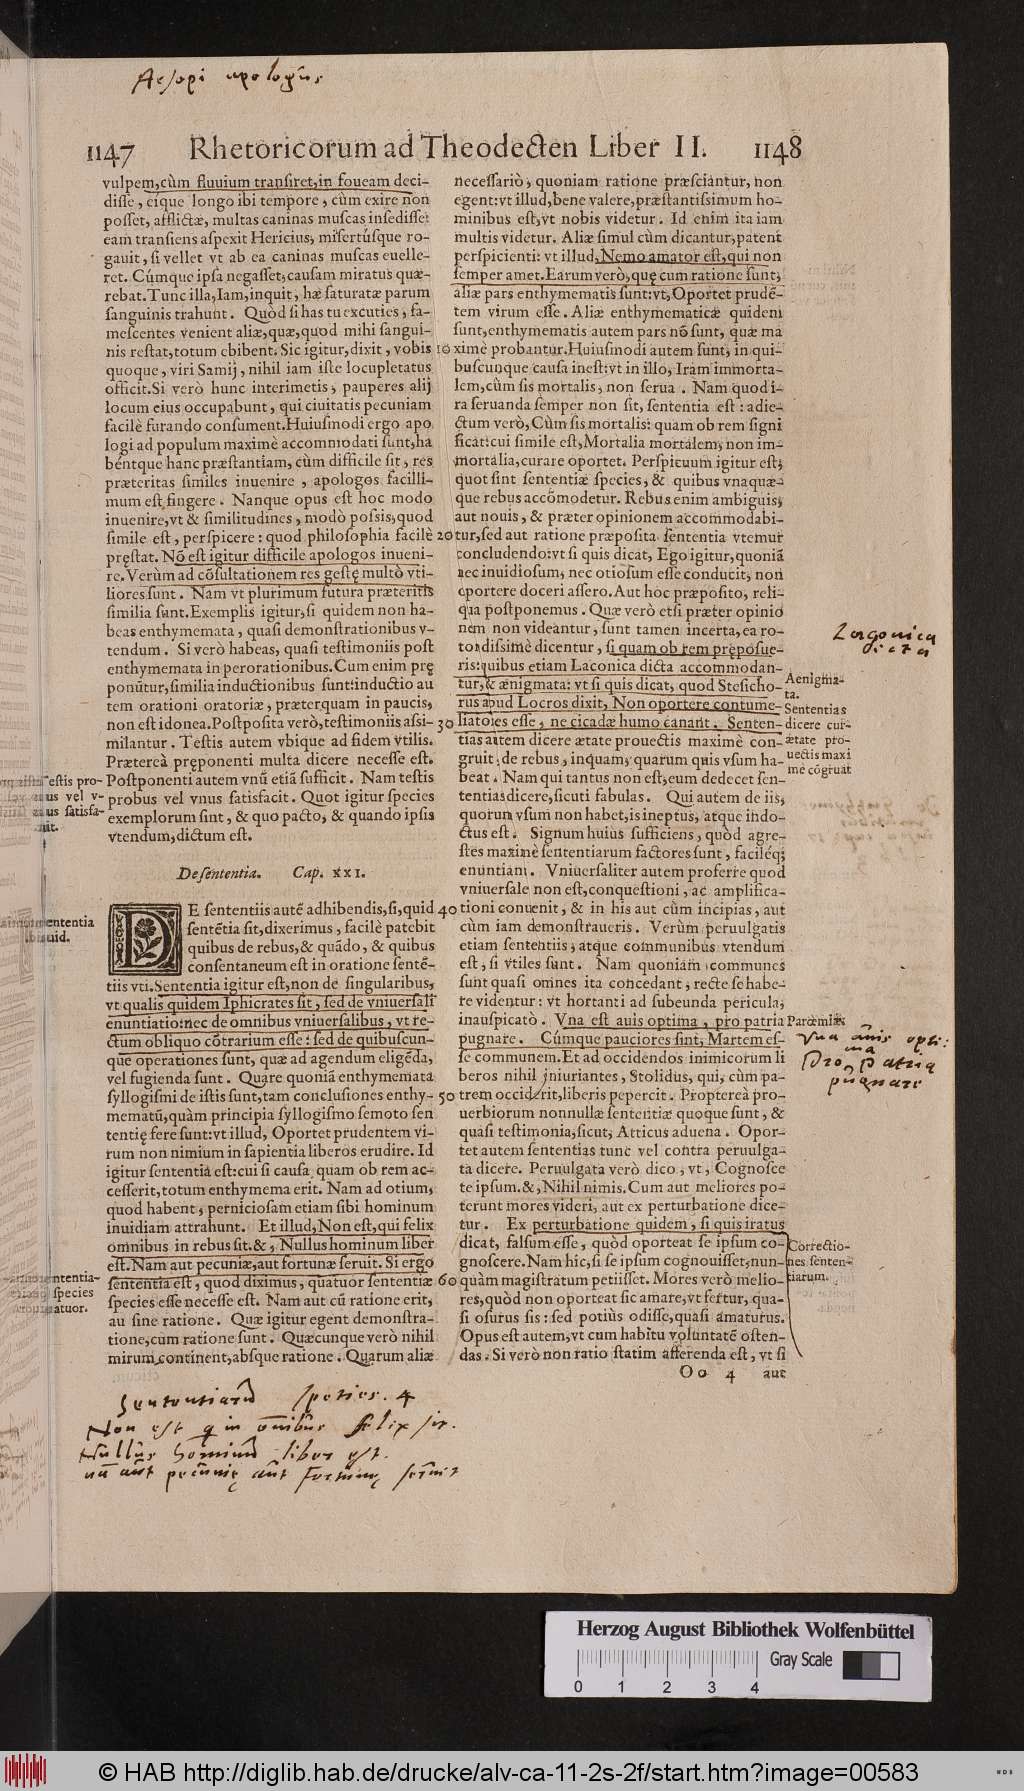 Aesopi apologus
1147 Rhetoricorum ad Theodecten Liber II. 1148
vulpem,cùm fluuium transiret,in foueam deci-
disse, eíque longo ibi tempore, cùm exire non
posset, afflictæ, multas caninas muscas insedisse:
eam transiens aspexit Hericius, misertúsque ro-
gauit, si vellet vt ab ea caninas muscas euelle-
ret. Cúmque ipsa negasset,causam miratus quæ-
rebat. Tunc illa,Iam,inquit, hæ saturatæ parum
sanguinis trahunt. Quòd si has tu excuties, fa-
mescentes venient aliæ,quæ,quod mihi sangui-
nis restat,totum ebibent. Sic igitur,dixit, vobis
quoque, viri Samij, nihil iam iste locupletatus
officit.Si verò hunc interimetis, pauperes alij
locum eius occupabunt, qui ciuitatis pecuniam
facilè furando consument.Huiusmodi ergo apo
logi ad populum maximè accommodati sunt,ha
béntque hanc præstantiam, cùm difficile sit, res
præteritas similes inuenire, apologos facilli-
mum est fingere. Nanque opus est hoc modo
inuenire,vt & similitudines, modò possis,quod
simile est, perspicere: quod philosophia facilè
pręstat. Nõ est igitur difficile apologos inueni-
re. Verùm ad cõsultationem res gestę multò vti-
liores sunt. Nam vt plurimum futura præteritis
similia sunt.Exemplis igitur,si quidem non ha-
beas enthymemata, quasi demonstrationibus v-
tendum. Si verò habeas, quasi testimoniis post
enthymemata in perorationibus.Cum enim prę
ponũtur,similia inductionibus sunt:inductio au
tem orationi oratoriæ, præterquam in paucis,
non est idonea.Postposita verò,testimoniis assi-
milantur. Testis autem vbique ad fidem vtilis.
Præterea pręponenti multa dicere necesse est.
Postponenti autem vnũ etiã sufficit. Nam testis
probus vel vnus satisfacit. Quot igitur species
exemplorum sint, & quo pacto, & quando ipsis
vtendum,dictum est.
estis pro-
us vel v-
us satisfa-
De sententia. Cap. XXI.
DE sententiis autẽ adhibendis,si,quid
sentẽtia sit,dixerimus, facilè patebit
quibus de rebus,& quãdo, & quibus
consentaneum est in oratione sentẽ-
tiis vti.Sententia igitur est,non de singularibus,
vt qualis quidem Iphicrates sit, sed de vniuersali
enuntiatio:nec de omnibus vniuersalibus, vt re-
ctum obliquo cõtrarium esse: sed de quibuscun-
que operationes sunt, quæ ad agendum eligẽda,
vel fugienda sunt. Quare quoniã enthymemata
syllogismi de istis sunt,tam conclusiones enthy-
mematũ,quàm principia syllogismo semoto sen
tentię fere sunt:vt illud, Oportet prudentem vi-
rum non nimium in sapientia liberos erudire. Id
igitur sententia est:cui si causa, quam ob rem ac-
cesserit,totum enthymema erit. Nam ad otium,
quod habent, perniciosam etiam sibi hominum
inuidiam attrahunt. Et illud,Non est,qui felix
omnibus in rebus sit.&, Nullus hominum liber
est.Nam aut pecuniæ,aut fortunæ seruit. Si ergo
sententia est, quod diximus, quatuor sententiæ
species esse necesse est. Nam aut cũ ratione erit,
au sine ratione. Quæ igitur egent demonstra-
tione,cùm ratione sunt. Quæcunque verò nihil
mirum continent,absque ratione. Quarum aliæ
ententia
uid.
ententia-
species
atuor.
necessariò, quoniam ratione præsciantur, non
egent:vt illud,bene valere,præstantissimum ho-
minibus est,vt nobis videtur. Id enim ita iam
multis videtur. Aliæ simul cùm dicantur,patent
perspicienti: vt illud,Nemo amator est,qui non
semper amet.Earum verò,quę cum ratione sunt,
aliæ pars enthymematis sunt:vt,Oportet prudẽ-
tem virum esse. Aliæ enthymematicæ quidem
sunt,enthymematis autem pars nõ sunt, quæ ma
10 ximè probantur.Huiusmodi autem sunt, in qui-
buscunque causa inest:vt in illo, Iram immorta-
lem,cùm sis mortalis, non serua. Nam quod i-
ra seruanda semper non sit, sententia est: adie-
ctum verò, Cùm sis mortalis: quam ob rem signi
ficat:cui simile est,Mortalia mortalem, non im-
mortalia,curare oportet. Perspicuum igitur est,
quot sint sententiæ species, & quibus vnaquæ-
que rebus accõmodetur. Rebus enim ambiguis,
aut nouis, & præter opinionem accommodabi-
20 tur,sed aut ratione præposita sententia vtemur
concludendo:vt si quis dicat, Ego igitur,quoniã
nec inuidiosum, nec otiosum esse conducit, non
oportere doceri assero. Aut hoc præposito, reli-
qua postponemus. Quæ verò etsi præter opinio
nem non videantur, sunt tamen incerta,ea ro-
tundissimè dicentur, si quam ob rem pręposue-
ris:quibus etiam Laconica dicta accommodan-
tur,& ænigmata: vt si quis dicat, quod Stesicho-
rus apud Locros dixit, Non oportere contume-
30 liatores esse, ne cicadæ humo canant. Senten-
tias autem dicere ætate prouectis maximè con-
gruit: de rebus, inquam, quarum quis vsum ha-
beat. Nam qui tantus non est,eum dedecet sen-
tentias dicere,sicuti fabulas. Qui autem de iis,
quorum vsum non habet,is ineptus, atque indo-
ctus est. Signum huius sufficiens, quòd agre-
stes maximè sententiarum factores sunt, faciléq;
enuntiant. Vniuersaliter autem proferre quod
vniuersale non est,conquestioni, ac amplifica-
40 tioni conuenit, & in his aut cùm incipias, aut
cùm iam demonstraueris. Verùm peruulgatis
etiam sententiis, atque communibus vtendum
est, si vtiles sunt. Nam quoniam communes
sunt quasi omnes ita concedant, recte se habe-
re videntur: vt hortanti ad subeunda pericula,
inauspicatò. Vna est auis optima, pro patria
pugnare. Cúmque pauciores sint, Martem es-
se communem.Et ad occidendos inimicorum li
beros nihil iniuriantes, Stolidus, qui, cùm pa-
50 trem occiderit,liberis pepercit. Propterea pro-
uerbiorum nonnulla sententiæ quoque sunt, &
quasi testimonia,sicut, Atticus aduena. Opor-
tet autem sententias tunc vel contra peruulga-
ta dicere. Peruulgata verò dico, vt, Cognosce
te ipsum.&, Nihil nimis.Cum aut meliores po-
terunt mores videri, aut ex perturbatione dice-
tur. Ex perturbatione quidem, si quis iratus
dicat, falsum esse, quòd oporteat se ipsum co-
gnoscere. Nam hic,si se ipsum cognouisset,nun-
60 quàm magistratum petiisset. Mores verò melio-
res,quòd non oporteat sic amare,vt fertur, qua-
si osurus sis: sed potiùs odisse,quasi amaturus.
Opus est autem,vt cum habitu voluntatẽ osten-
das. Si verò non ratio statim afferenda est, vt si
Oo 4 aut
Laconica
dicta
Aenigma-
ta.
Sententias
dicere cur
ætate pro-
uectis maxi
mè cõgruat
Parœmiæ
Vna auis opti:
ma
Pro Patria
pugnare
Correctio-
nes senten-
tiarum.
Sententiarũ species. 4
Non est q in omibus felix sit.
Nullus hominũ liber est.
nã aut pecunię aut fortunę seruit
Herzog August Bibliothek Wolfenbüttel
Gray Scale
0 1 2 3 4
© HAB http://diglib.hab.de/drucke/alv-ca-11-2s-2f/start.htm?image=00583